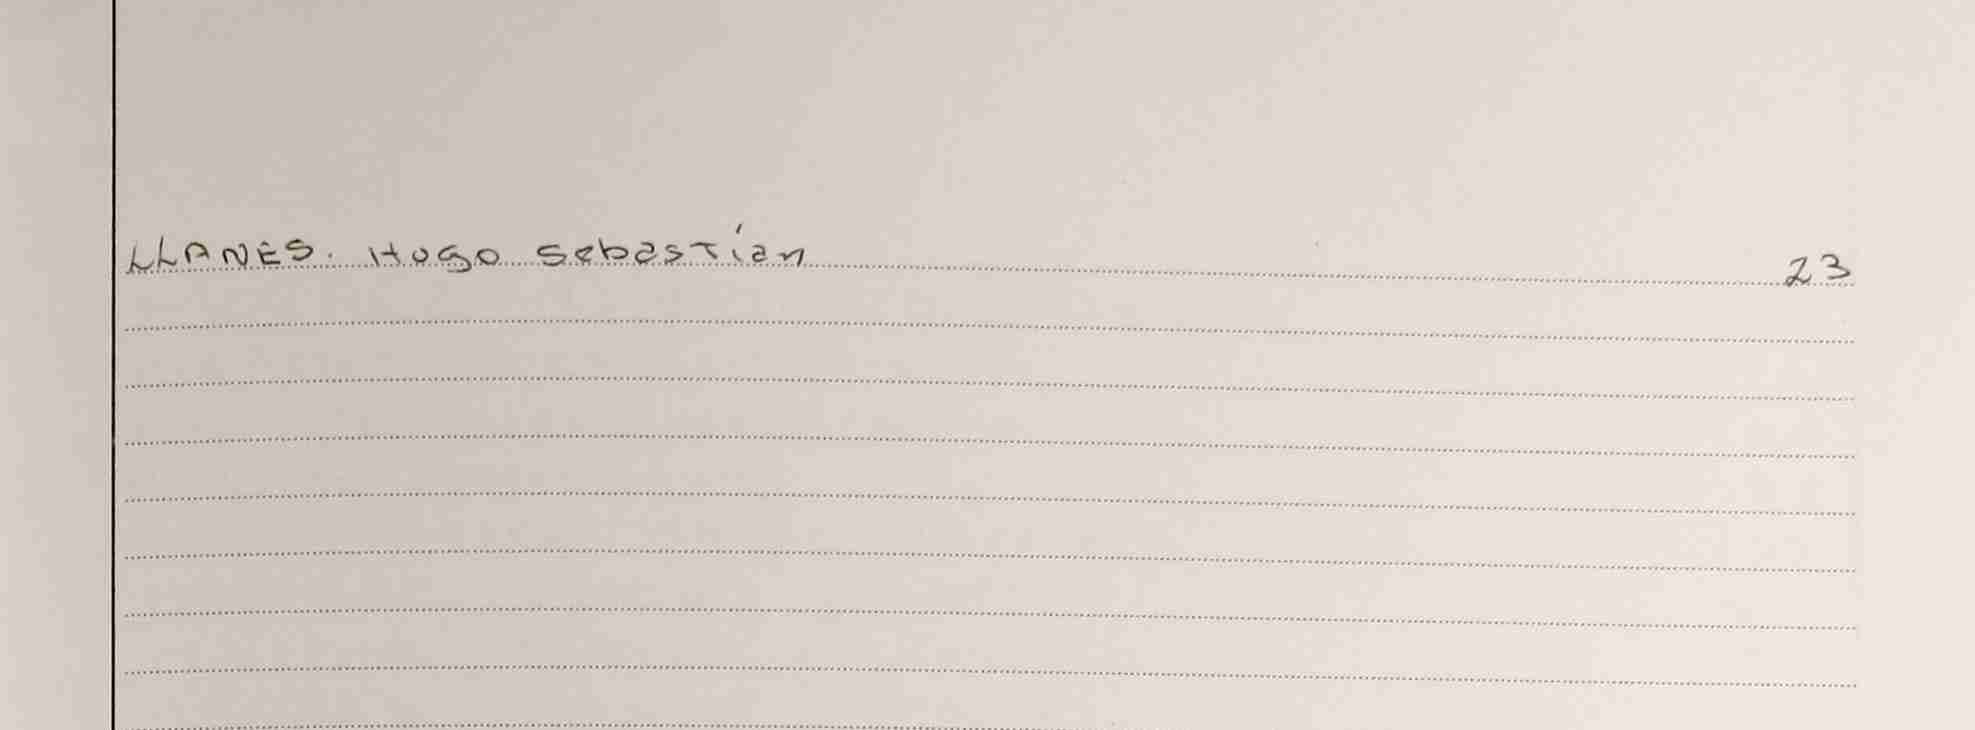 LLANES. Hugo Sebastían 23